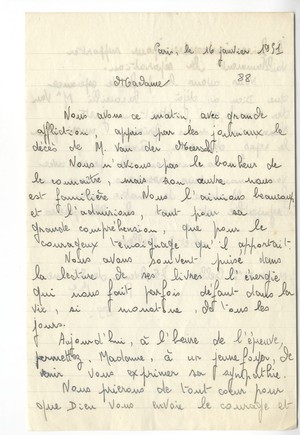 Paris, le 16 janvier 1951
88
Madame
Nous avons ce matin, avec grande
affliction, appris par les journaux le
décès de M. Van der Meersch.
Nous n'avions pas le bonheur de
le connaître, mais son œuvre nous
est familière. Nous l'aimions beaucoup
et l'admirions, tant pour sa
grande compréhension, que pour le
courageux témoignage qu'il apportait.
Nous avons souvent puisé dans
la lecture de ses livres l'énergie
qui nous fait parfois défaut dans la
vie, si monotone, de tous les
jours.
Aujourd'hui, à l'heure de l'épreuve,
permettez, Madame, à un jeune foyer, de
venir Vous exprimer sa sympathie.
Nous prierons de tout cœur pour
que Dieu Vous envoie le courage et